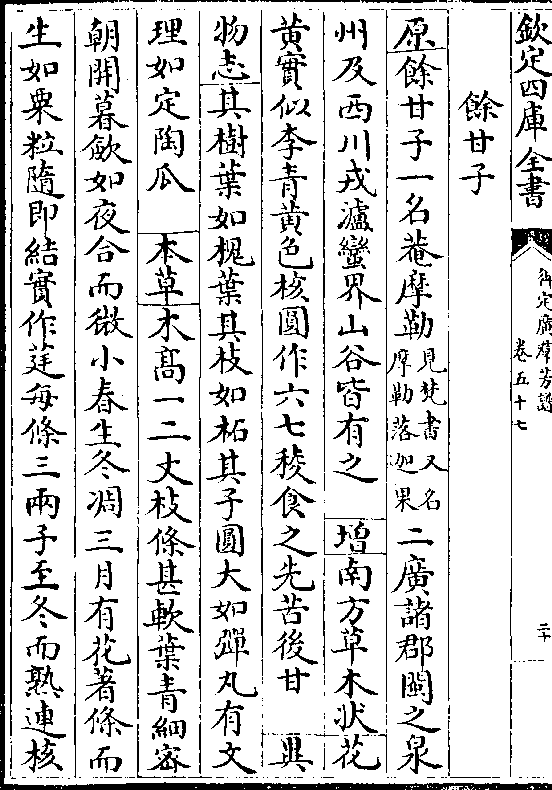 欽定四庫全書
御定廣羣芳譜
卷五十七
二十
餘甘子
原餘甘子一名菴摩勒見梵書又名摩勒落迦果二廣諸郡閩之泉
州及西川戎瀘蠻界山谷皆有之 增南方草木狀花
黃實似李青黃色核圓作六七稜食之先苦後甘 異
物志其樹葉如槐葉其枝如柘其子圓大如彈丸有文
理如定陶瓜 本草木高一二丈枝條甚軟葉青細密
朝開暮歛如夜合而微小春生冬凋三月有花著條而
生如粟粒隨即結實作莛每條三兩子至冬而熟連核